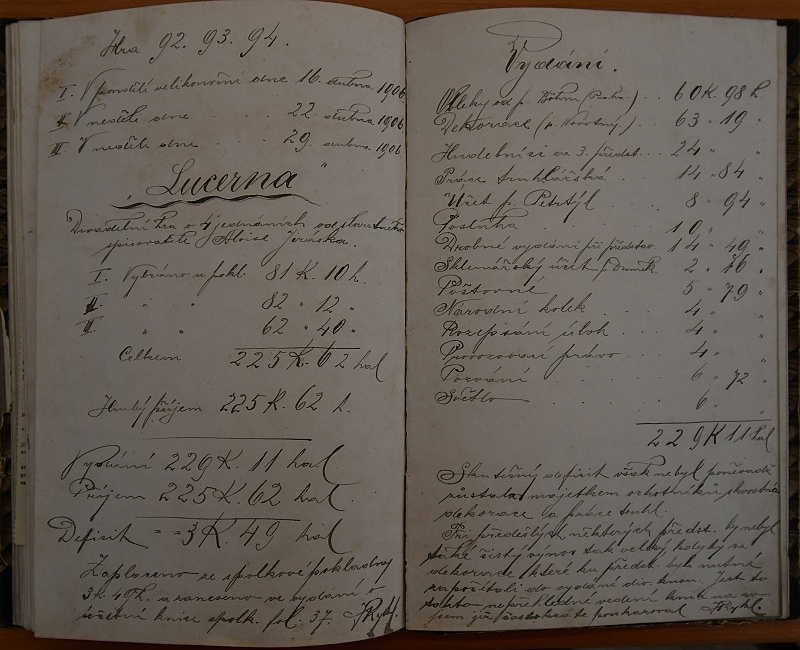 Hra 92. 93. 94.
I. V pondělí velikonoční dne 16. dubna 1906
II. V neděli dne . . . 22. dubna 1906
III. V neděli dne . . . 29. dubna 1906
„Lucerna"
Divadelní hra o 4 jednáních od slovutného
spisovatele Aloise Jiráska.
I. Vybráno u pokl. 81 K. 10 h.
II. „ „ 82 „ 12 „
III. „ „ 62 „ 40 „
Celkem 225 K. 62 hal
Hrubý příjem 225 K. 62 h.
Vydání 229 K. 11 hal
Příjem 225 K. 62 hal.
Deficit = 3 K. 49 hal
Zaplaceno ze spolkové pokladny
3 K. 49 h. a zaneseno ve vydání o
účetní knize spolk. fol. 37.
Vydání.
od p. Böhm 60 K. 98 h
Dekorace (p. Novotný) . . 63 „ 19 „
Hudebníci za 3 předst. . . 24 „ „
Práce truhlářská . . 14 „ 84 „
Účet p. Petrtýl 8 „ 94 „
Posluha . . . 10 „ „
Drobné vydání při představ. 14 „ 49 „
Sklenářský účet p. 2 „ 76 „
Poštovné . . . 5 „ 79 „
Národní kolek . . . 4 „ „
Rozepsání úloh . . . 4 „ „
Provozovací právo . . 4 „ „
. . . 6 „ 72 „
Světlo . . . 6 „
229 K 11 hal
Skutečný deficit však nebyl poněvadž
zůstala majetkem ochotníků skvostná
dekorace a práce truhl.
Při předešlých některých předst. by nebyl
také čistý výnos tak velký, kdyby se
dekorace, které ku předst. byly nutné
započítali do vydání div. kusu. Jest to
nepřehledné vedení knih na co
jsem již poukazoval